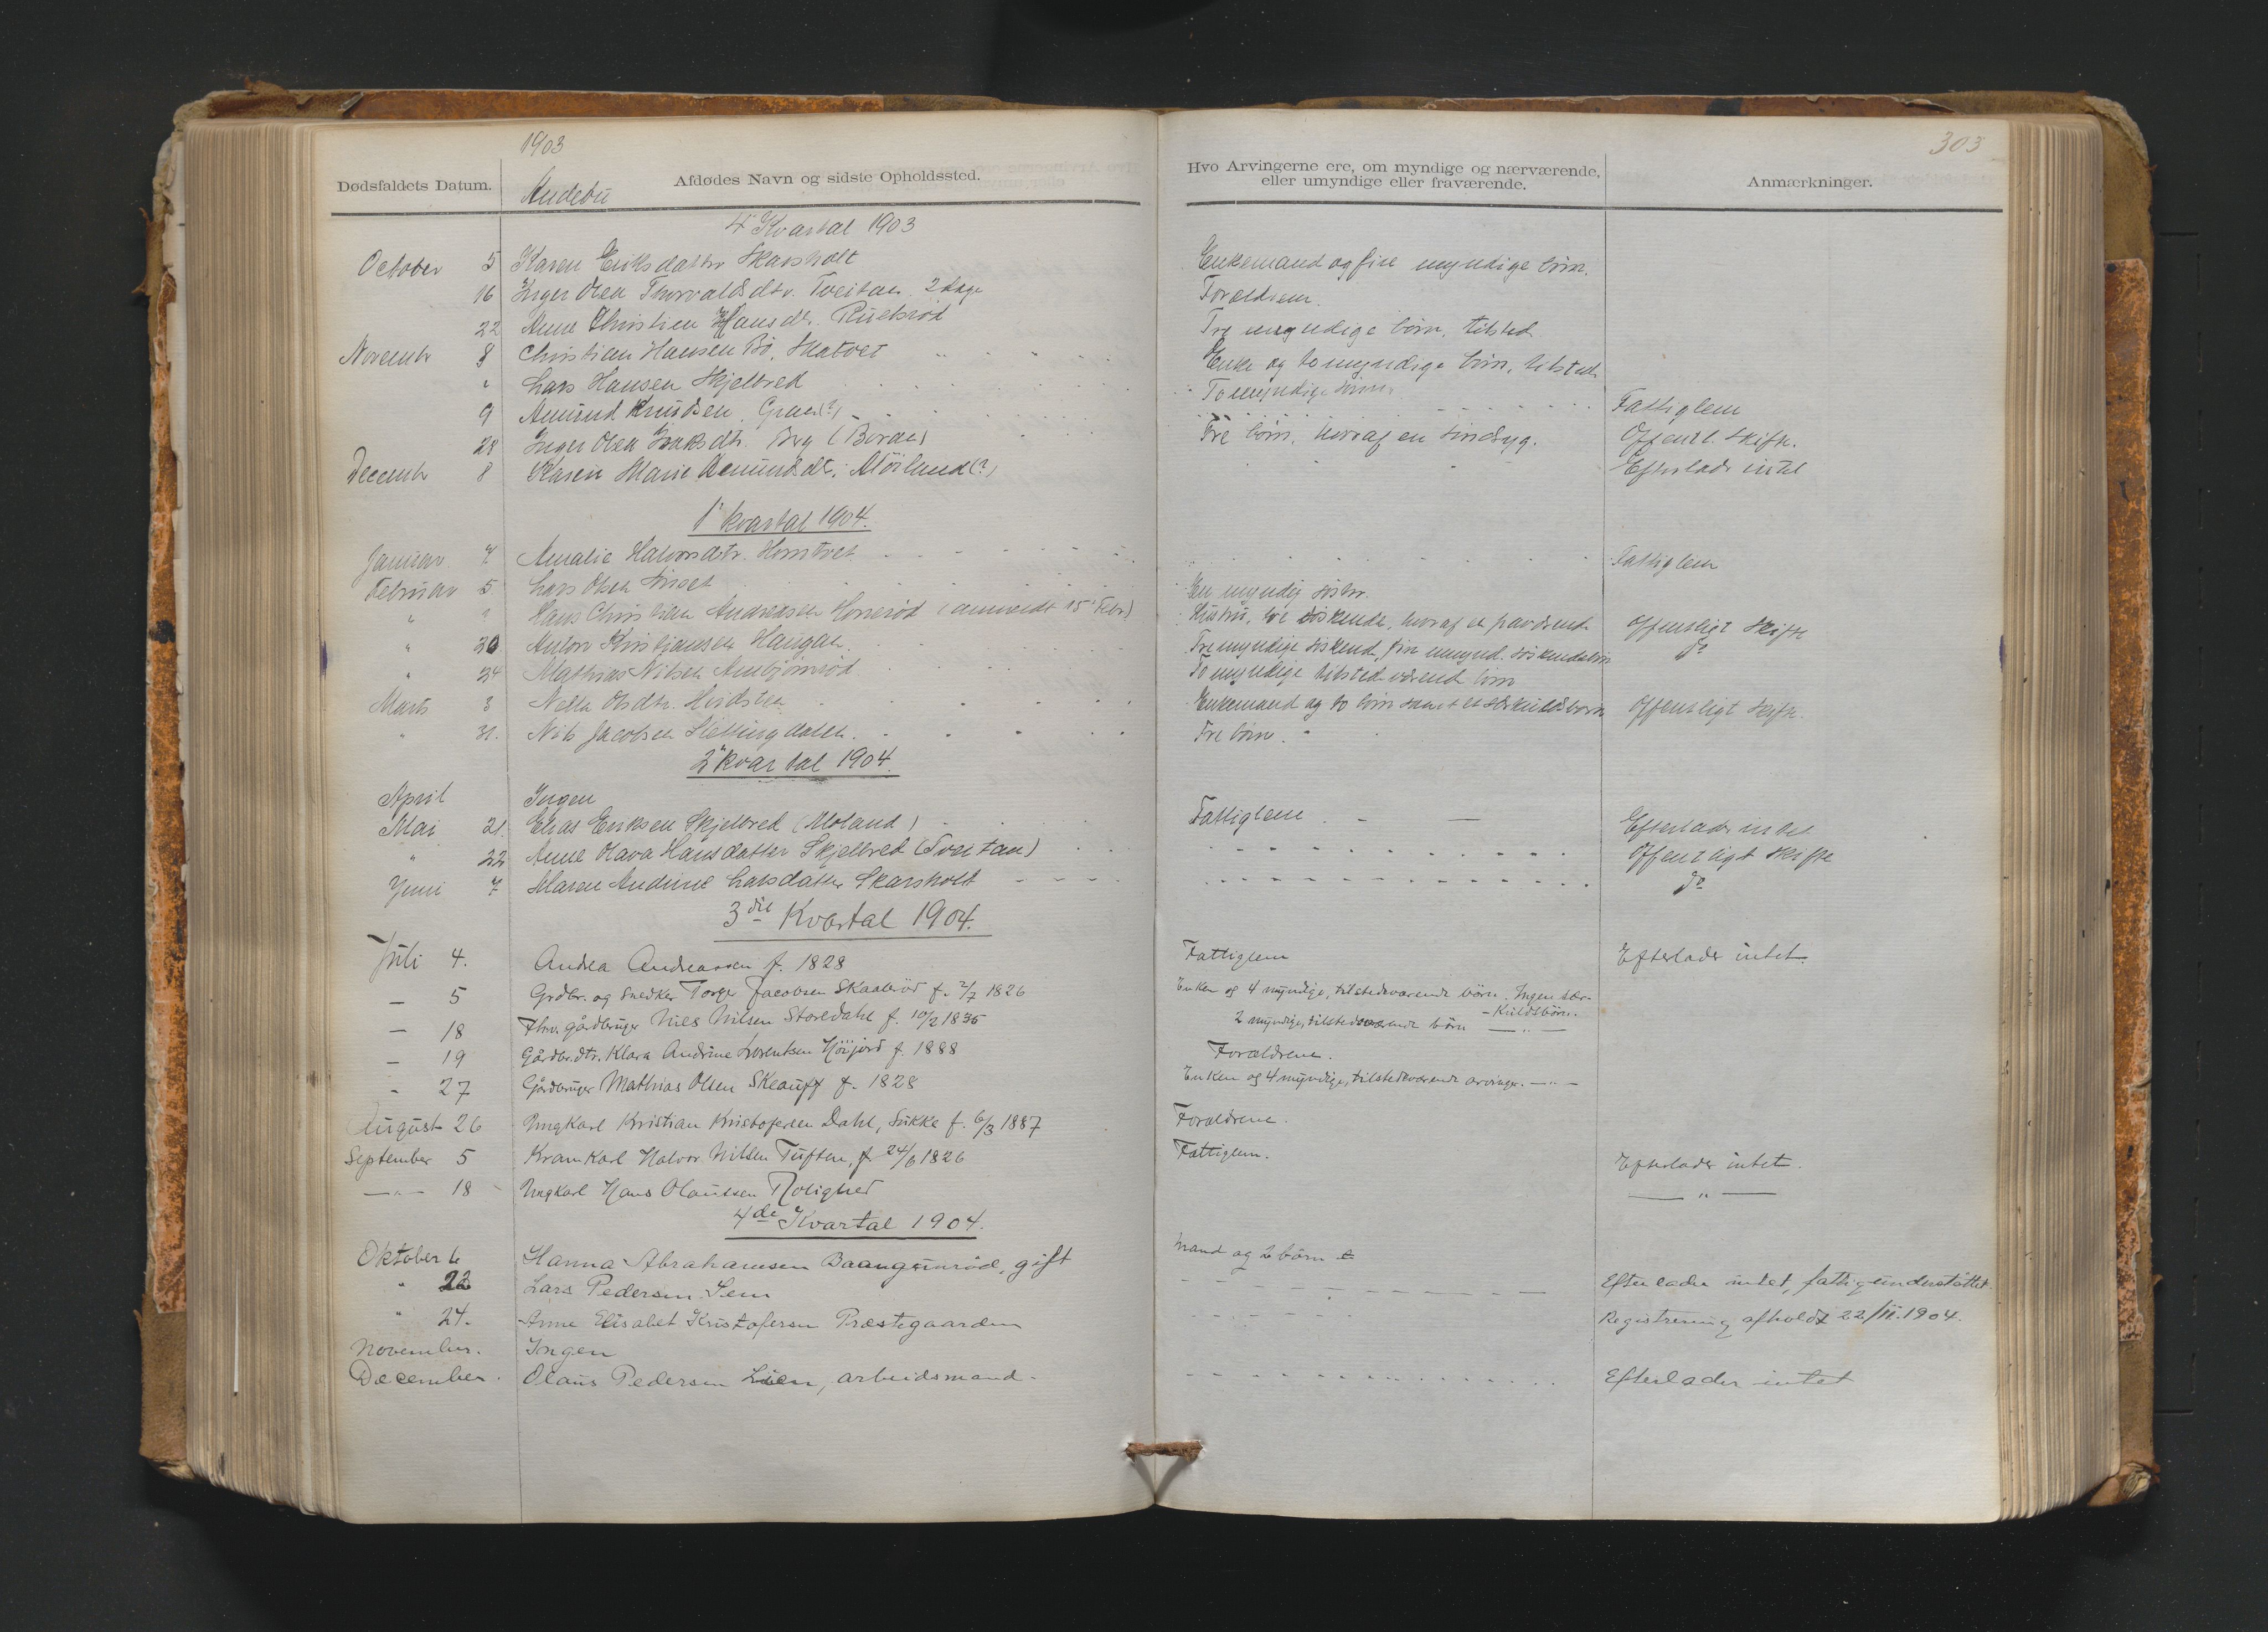 1903
303
Dødsfaldets Datum. Afdødes Navn og sidste Opholdssted. Hvo Arvingerne ere, om myndige og nærværende, eller umyndige eller fraværende. Anmærkninger.
Andebu
4' Kvartal 1903
October 5 Karen Eriksdatter Skarsholt Enkemand og fire myndige børn.
16 Inger Olea Thorvaldsdtr. Tveitan 2 dage Forældrene.
22 Anne Christine Hansdtr. Ruelsrød Tre myndige børn, tilsted
Novembr 8 Christian Hansen Bø, Skatvet Enke og to myndige børn, tilstede
" Lars Hansen Skjelbred To myndige sønner
9 Amund Knudsen, Graen(?) Fattiglem
28 Inger Olea Isaksdtr. Berg (Borde) Tre børn, hvoraf en sindsyg. Offentl. skifte.
Decembr 8 Karen Marie Amundsdtr. Møiland(?) Efterlader intet
1' kvartal 1904.
Januar 7 Amalie Halvorsdtr. Horntvet Fattiglem
Februar 5 Lars Olsen En myndig søster.
" " Hans Christian Andreasen Honerød (anmeldt 15' Febr.) Hustru, tre søskende, hvoraf en Offentligt Skifte
" 20 Anton Kristiansen Haugan Tre myndige søskend, fire umynd. søskendebørn do
" 24 Mathias Nilsen Anbjørnrød To myndige tilstedværend børn
Marts 3 Nella Olsdtr. Hvidsten Enkemand og to børn samt et særkuldsbarn Offentligt skifte.
" 31. Nils Jacobsen Slettingdalen. Tre børn.
2' kvartal 1904.
April Ingen
Mai 21. Elias Eriksen Skjelbred (Moland) Fattiglem Efterlader intet
" 22 Anne Olava Hansdatter Skjelbred (Tveitan) Offentligt skifte
Juni 7 Maren Andrine Larsdatter Skarsholt do
3die Kvartal 1904.
Juli 4. Andrea Andreassen f. 1828 Fattiglem Efterlader intet.
— 5 Grdbr. og Snedker Torger Jacobsen Skaaberød f. 2/7 1826 Enken og 4 myndige, tilstedeværende børn. Ingen sær-
-Kuldsbørn.
— 18 Fhv. gårdbruger Nils Nilsen Storedahl f. 10/2 1835 2 myndige, tilstedeværende børn — " —
— 19 Gårdbr.dtr. Klara Andrine Lorentsen Höijord f. 1888 Forældrene.
- 27 Gårdbruger Mathias Olsen Skeaug f. 1828 Enken og 4 myndige, tilstedeværende arvinger. — " —
August 26 Ungkarl Kristian Kristofersen Dahl, Sukke f. 6/3 1887 Forældrene.
September 5 Kramkarl Halvor Nilsen Tuften, f. 24/6 1826 Fattiglem. Efterlader intet.
— " — 18 Ungkarl Hans Olaussen Rolighed — " —
4de Kvartal 1904.
Oktober 6 Hanna Abrahamsen Baangunrød, gift Mand og 2 børn
" 22 Lars Pedersen Sem Efterlader intet, fattigunderstöttet.
" 24. Anne Elisabet Kristofersen Præstegaarden Registrering afholdt 22/11.1904.
November. Ingen
December. Olaus Pedersen Lien, arbeidsmand. Efterlader intet